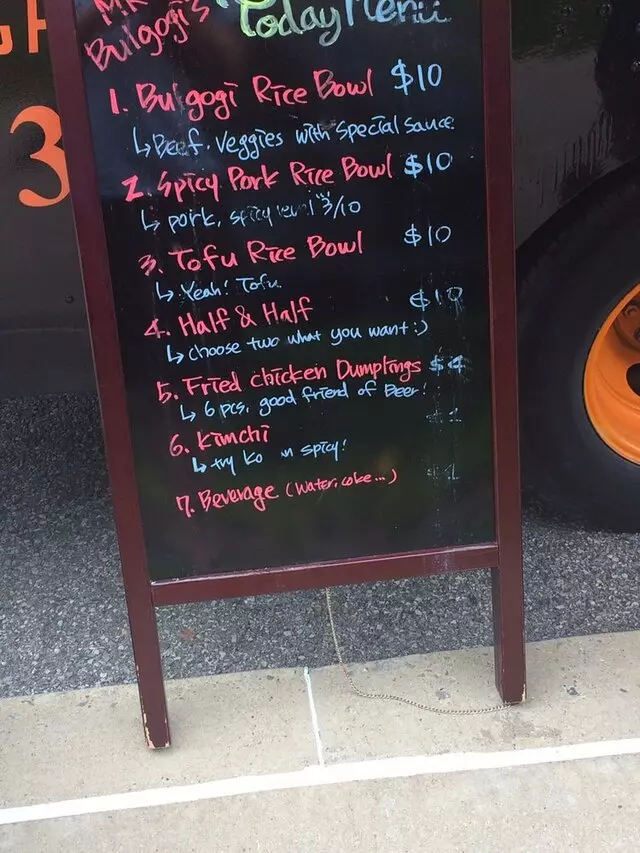 MR
Bulgogi's
Today Menu
1. Bulgogi Rice Bowl $10
↳ Beef, veggies with special sauce
2. Spicy Pork Rice Bowl $10
↳ pork, spicy level "3/10
3. Tofu Rice Bowl $10
↳ Yeah! Tofu
4. Half & Half $10
↳ choose two what you want :)
5. Fried chicken Dumplings $4
↳ 6 pcs, good friend of Beer!
6. kimchi
↳ try spicy!
7. Beverage (water, coke...)
3